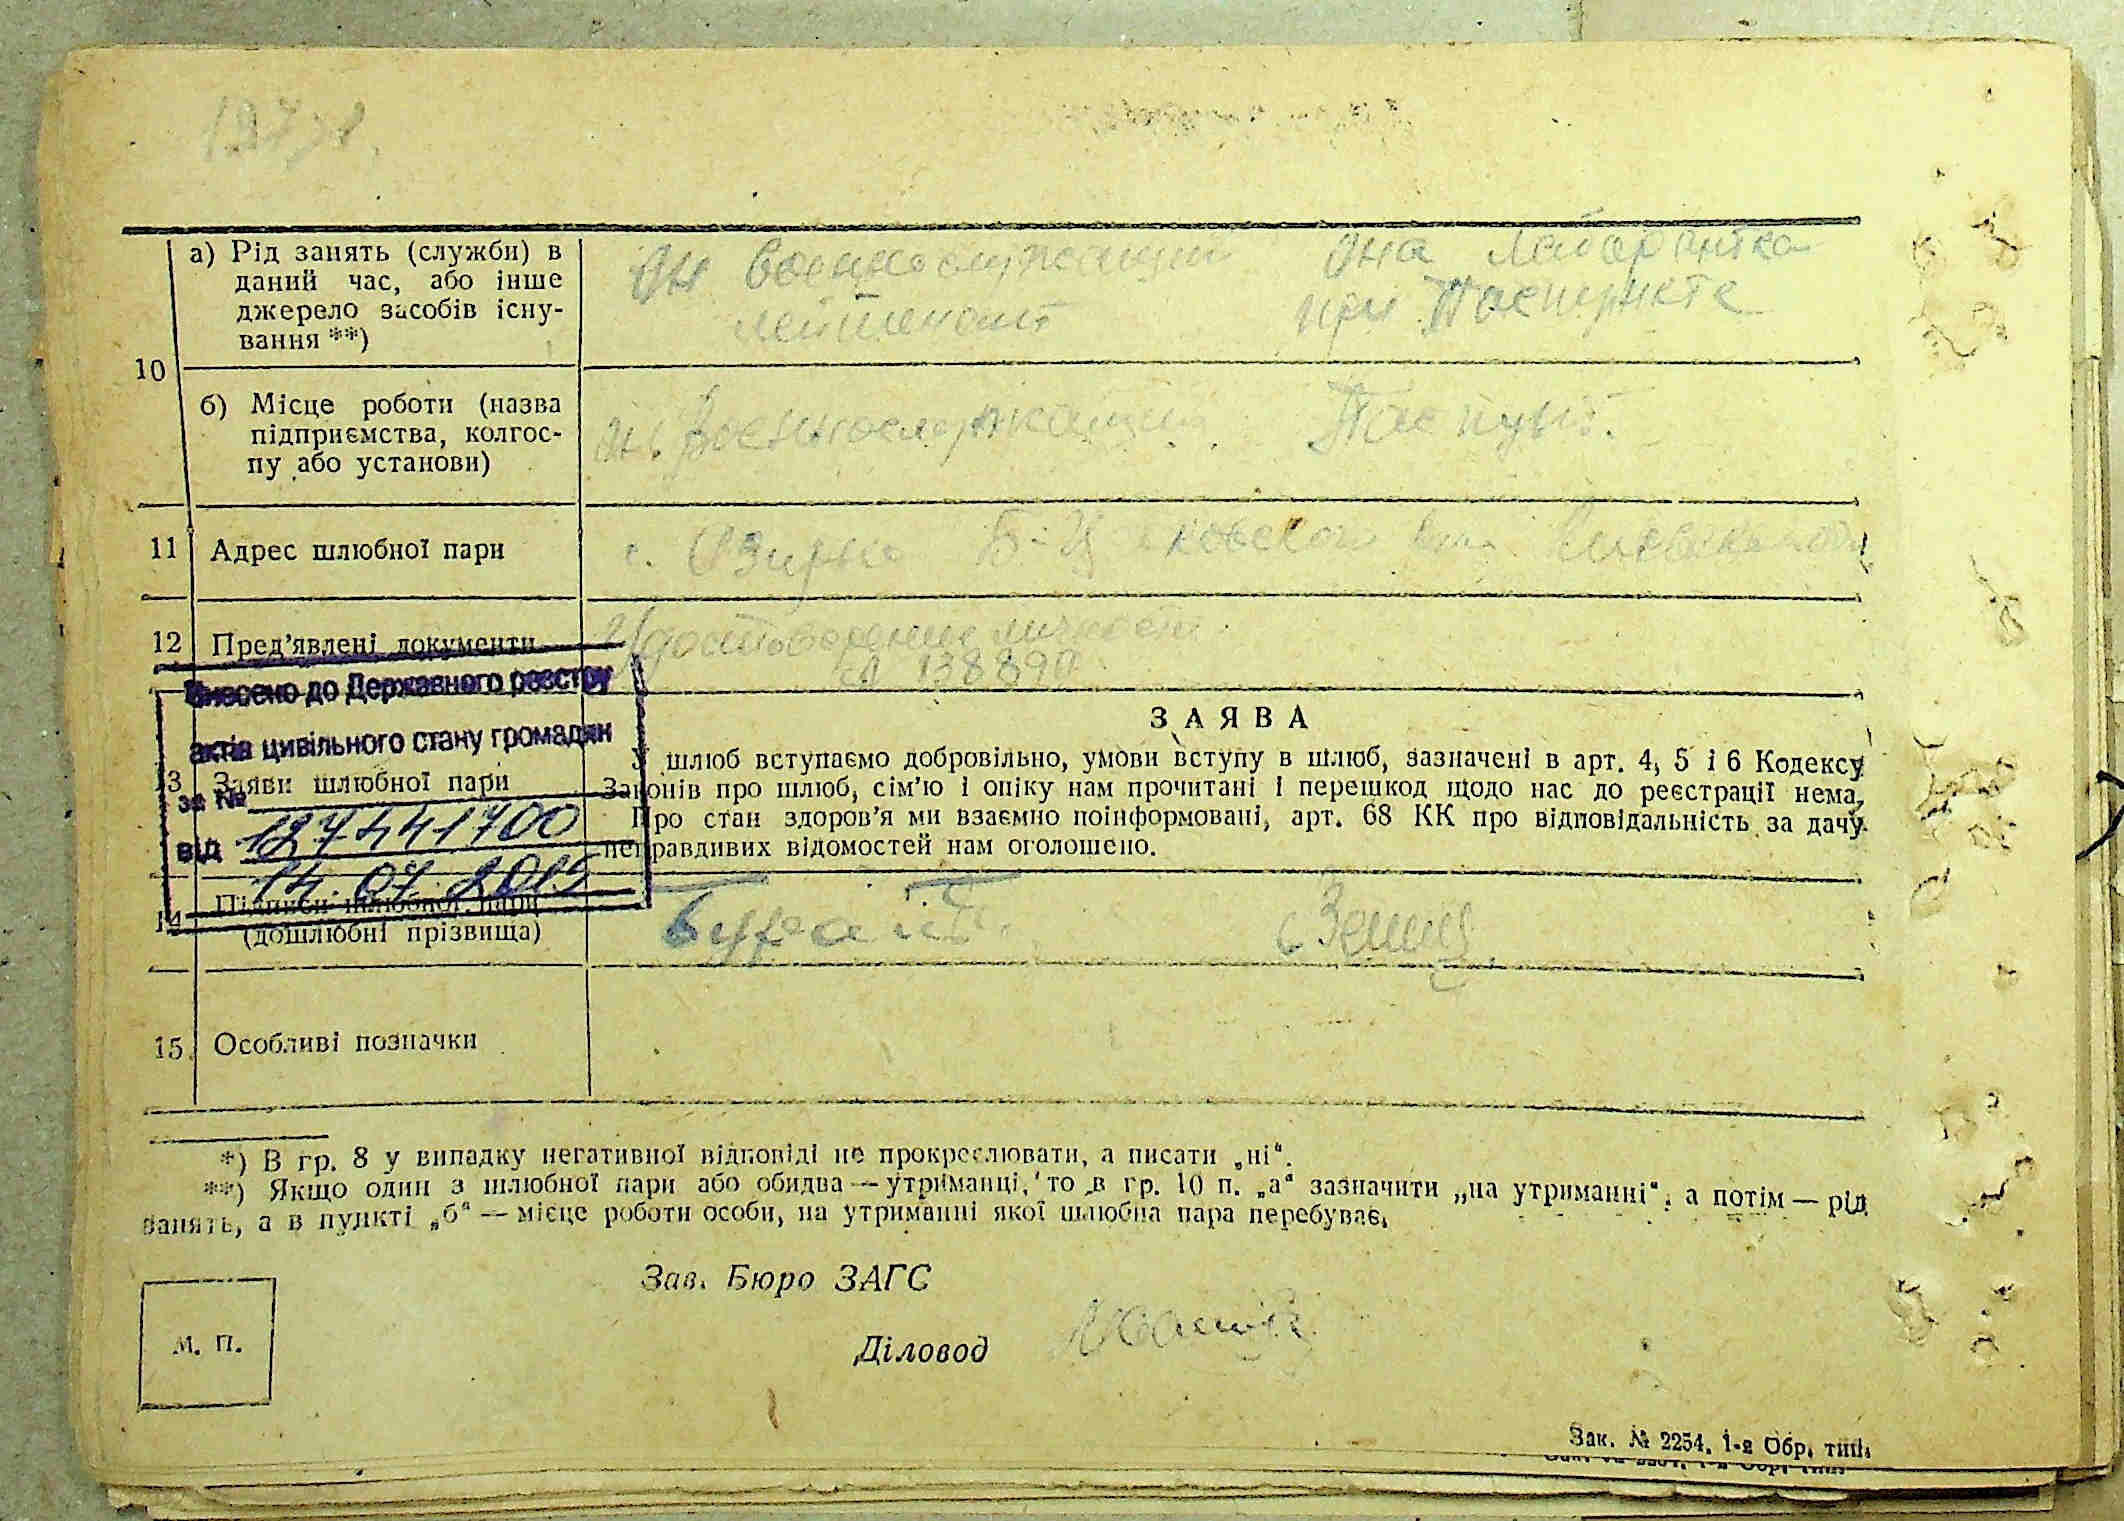 а) Рід занять (служби) в
даний час, або інше
джерело засобів існу-
вання **)
Он военнослужащий
лейтенант
Она лаборантка
при
10
б) Місце роботи (назва
підприємства, колгос-
пу або установи)
военнослужащий
11 Адрес шлюбної пари
с.
12 Пред'явлені документи
Удостоверение личности
138890
Внесено до Державного реєстру
актів цивільного стану громадян
за № 127441700
від 14.07.2015
13 Заяви шлюбної пари
ЗАЯВА
У шлюб вступаємо добровільно, умови вступу в шлюб, зазначені в арт. 4, 5 і 6 Кодексу
Законів про шлюб, сім'ю і опіку нам прочитані і перешкод щодо нас до реєстрації нема,
Про стан здоров'я ми взаємно поінформовані, арт. 68 КК про відповідальність за дачу
неправдивих відомостей нам оголошено.
14 Підписи шлюбної пари
(дошлюбні прізвища)
15. Особливі позначки
*) В гр. 8 у випадку негативної відповіді не прокреслювати, а писати „ні“.
**) Якщо один з шлюбної пари або обидва — утриманці, то в гр. 10 п. „а“ зазначити „на утриманні“, а потім — рід
занять, а в пункті „б“ — місце роботи особи, на утриманні якої шлюбна пара перебуває,
Зав. Бюро ЗАГС
М. П.
Діловод
Зак. № 2254. 1-а Обр. тип.